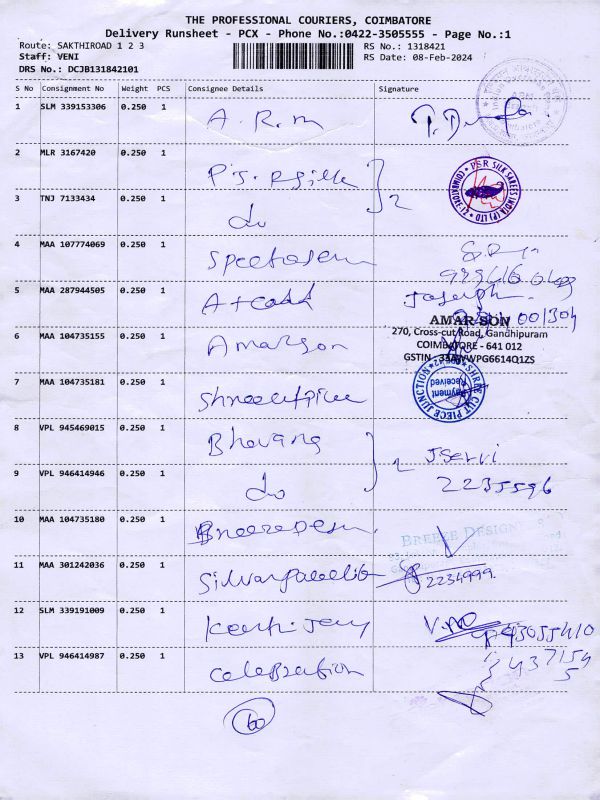 THE PROFESSIONAL COURIERS, COIMBATORE
Delivery Runsheet - PCX - Phone No.:0422-3505555 - Page No.:1
Route: SAKTHIROAD 1 2 3 RS No.: 1318421
Staff: VENI RS Date: 08-Feb-2024
DRS No.: DCJB131842101
S No Consignment No Weight PCS Consignee Details Signature
1 SLM 339153306 0.250 1 A.R.M
2 MLR 3167420 0.250 1 P.S.R Silk
PSR SILK SAREES INDIA (P) LTD
3 TNJ 7133434 0.250 1 do 2
4 MAA 107774069 0.250 1
5 MAA 287944505 0.250 1 Joseph
AMAR SON
270, Cross-cut Road, Gandhipuram
6 MAA 104735155 0.250 1 Amarson COIMBATORE - 641 012
7 MAA 104735181 0.250 1
SHREE CUT PIECE JUNCTION
Payment Received
8 VPL 945469015 0.250 1 Bhavana
2 2235596
9 VPL 946414946 0.250 1 do
10 MAA 104735180 0.250 1 BREEZE DESIGN
11 MAA 301242036 0.250 1 2234999
12 SLM 339191009 0.250 1
13 VPL 946414987 0.250 1 Celebration
60